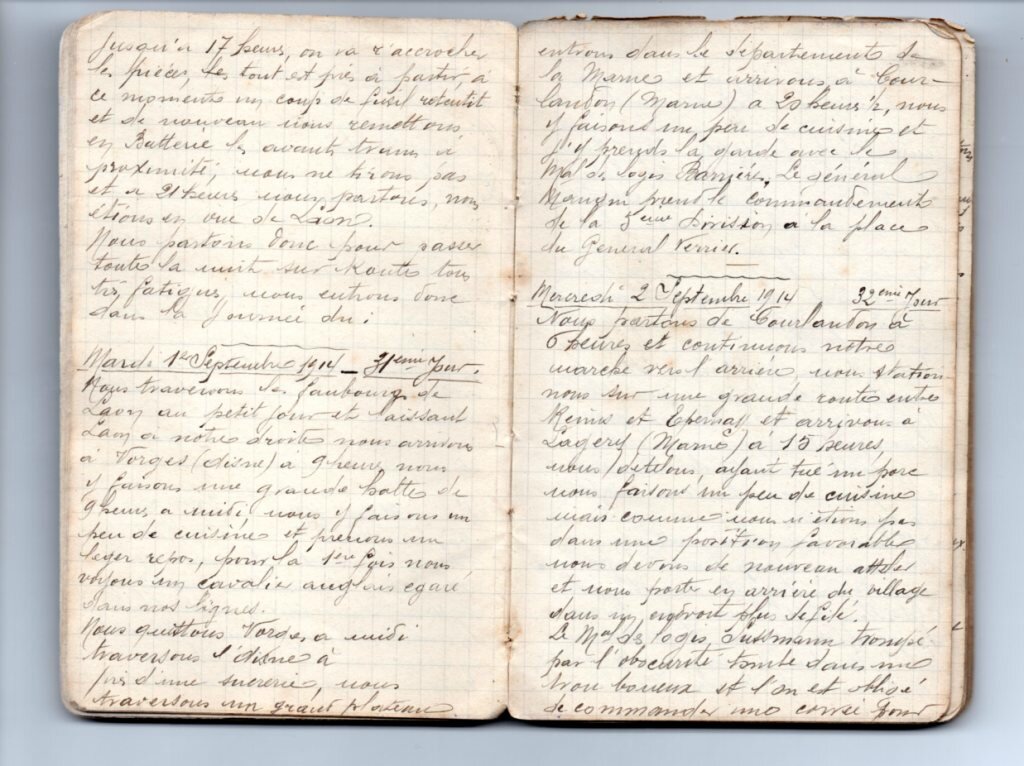 jusqu'à 17 heures, on va r'accrocher
les pièces, le tout est près à partir à
ce moment un coup de fusil retentit
et de nouveau nous remettons
en Batterie les avants trains à
proximité, nous ne tirons pas
et à 21 heures nous partons, nous
étions en vue de Laon.
Nous partons donc pour passer
toute la nuit sur Route tous
très fatigués, nous entrons donc
dans la journée du :
Mardi 1er Septembre 1914 _ 31eme Jour.
Nous traversons les faubourgs de
Laon au petit jour et laissant
Laon à notre droite nous arrivons
à Vorges (Aisne) à 9 heures, nous
y faisons une grande halte de
9 heures à midi nous y faisons un
peu de cuisine et prenons un
léger repos, pour la 1ere fois nous
voyons un cavalier anglais égaré
dans nos lignes.
Nous quittons Vorges à midi
traversons l'Aisne à
près d'une sucrerie, nous
traversons un grand plateau
entrons dans le département de
la Marne et arrivons à Cour-
landon (Marne) à 20 heures ½, nous
y faisons un peu de cuisine et
j'y prends la garde avec le
Mal des logis Barrière. Le Général
Mangin prend le commandement
de la 5eme Division à la place
du Général Verrier.
Mercredi 2 Septembre 1914 32eme Jour
Nous partons de Courlandon à
6 heures et continuons notre
marche vers l'arrière, nous station-
nons sur une grande route entre
Reims et Epernay et arrivons à
Lagery (Marne) à 15 heures,
nous dételons, ayant tué un porc
nous faisons un peu de cuisine
mais comme nous n'étions pas
dans une position favorable
nous devons de nouveau atteler
et nous porter en arrière du village
dans un endroit plus défilé.
Le Mal des logis Sussmann trompé
par l'obscurité tombe dans un
trou boueux et l'on est obligé
de commander une corvée pour